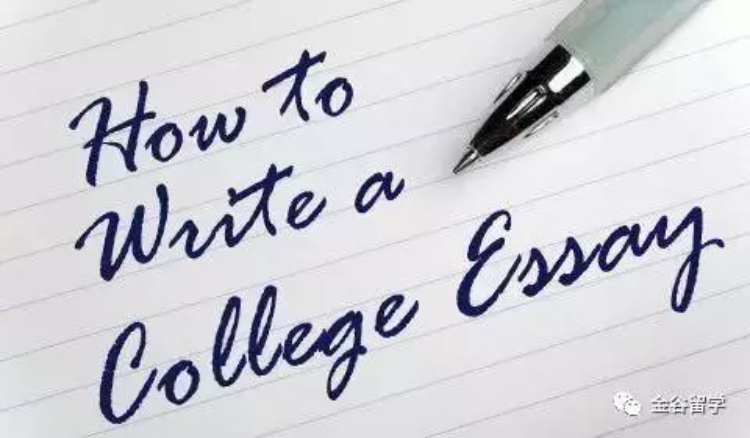 How to
Write a
College Essay
金谷留学